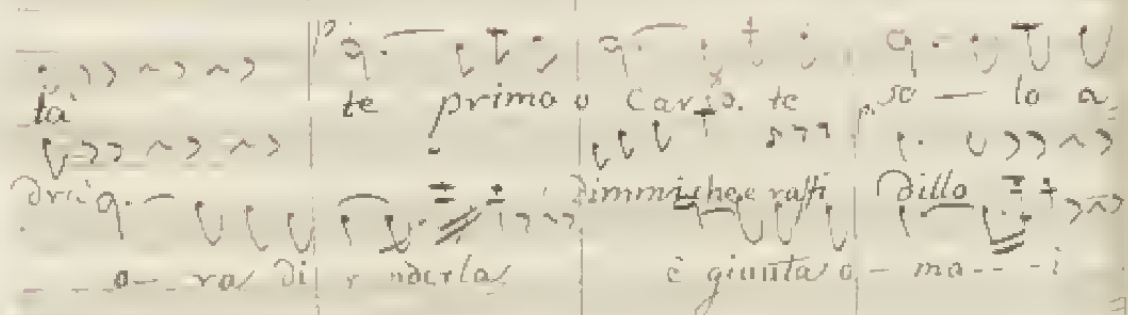 tà te primo o Caro. te so — lo a
drà Dimmi che e ra fi dillo
o — ra di r nderla è giunta o — ma - - - i